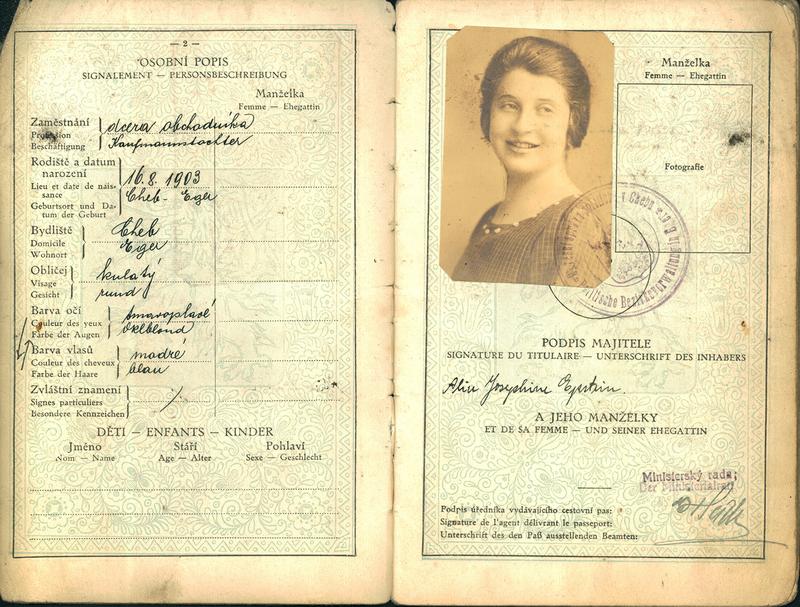 — 2 —
OSOBNÍ POPIS
SIGNALEMENT — PERSONSBESCHREIBUNG
Manželka
Femme — Ehegattin
Zaměstnání
Profession
Beschäftigung
dcera obchodníka
Kaufmannstochter
Rodiště a datum
narození
Lieu et date de nais-
sance
Geburtsort und Da-
tum der Geburt
16. 8. 1903
Cheb - Eger
Bydliště
Domicile
Wohnort
Cheb
Eger
Obličej
Visage
Gesicht
kulatý
rund
Barva očí
Couleur des yeux
Farbe der Augen
tmavoplavé
dklblond
Barva vlasů
Couleur des cheveux
Farbe der Haare
modré
blau
Zvláštní znamení
Signes particuliers
Besondere Kennzeichen
DĚTI — ENFANTS — KINDER
Jméno Stáří Pohlaví
Nom — Name Age — Alter Sexe — Geschlecht
Manželka
Femme — Ehegattin
Fotografie
PODPIS MAJITELE
SIGNATURE DU TITULAIRE — UNTERSCHRIFT DES INHABERS
Josephine Epstein.
A JEHO MANŽELKY
ET DE SA FEMME — UND SEINER EHEGATTIN
Ministerský rada:
Der Ministerialrat:
Podpis úředníka vydávajícího cestovní pas:
Signature de l'agent délivrant le passeport:
Unterschrift des den Paß ausstellenden Beamten: